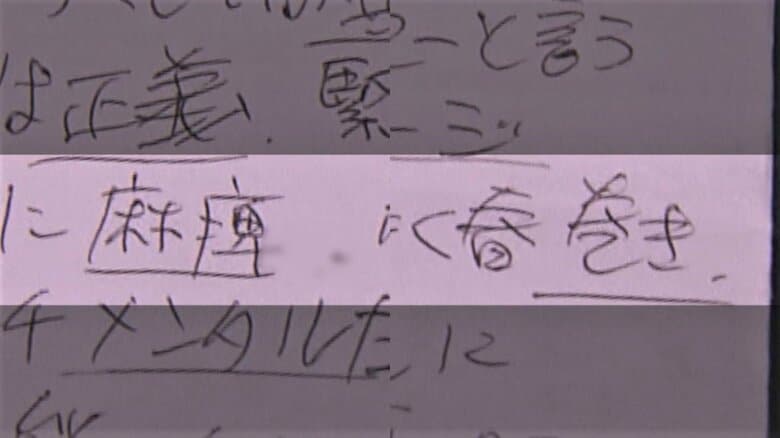 と言う
は正義、緊
ーミッ
に麻痺
く春巻き.
チメンタルた
に